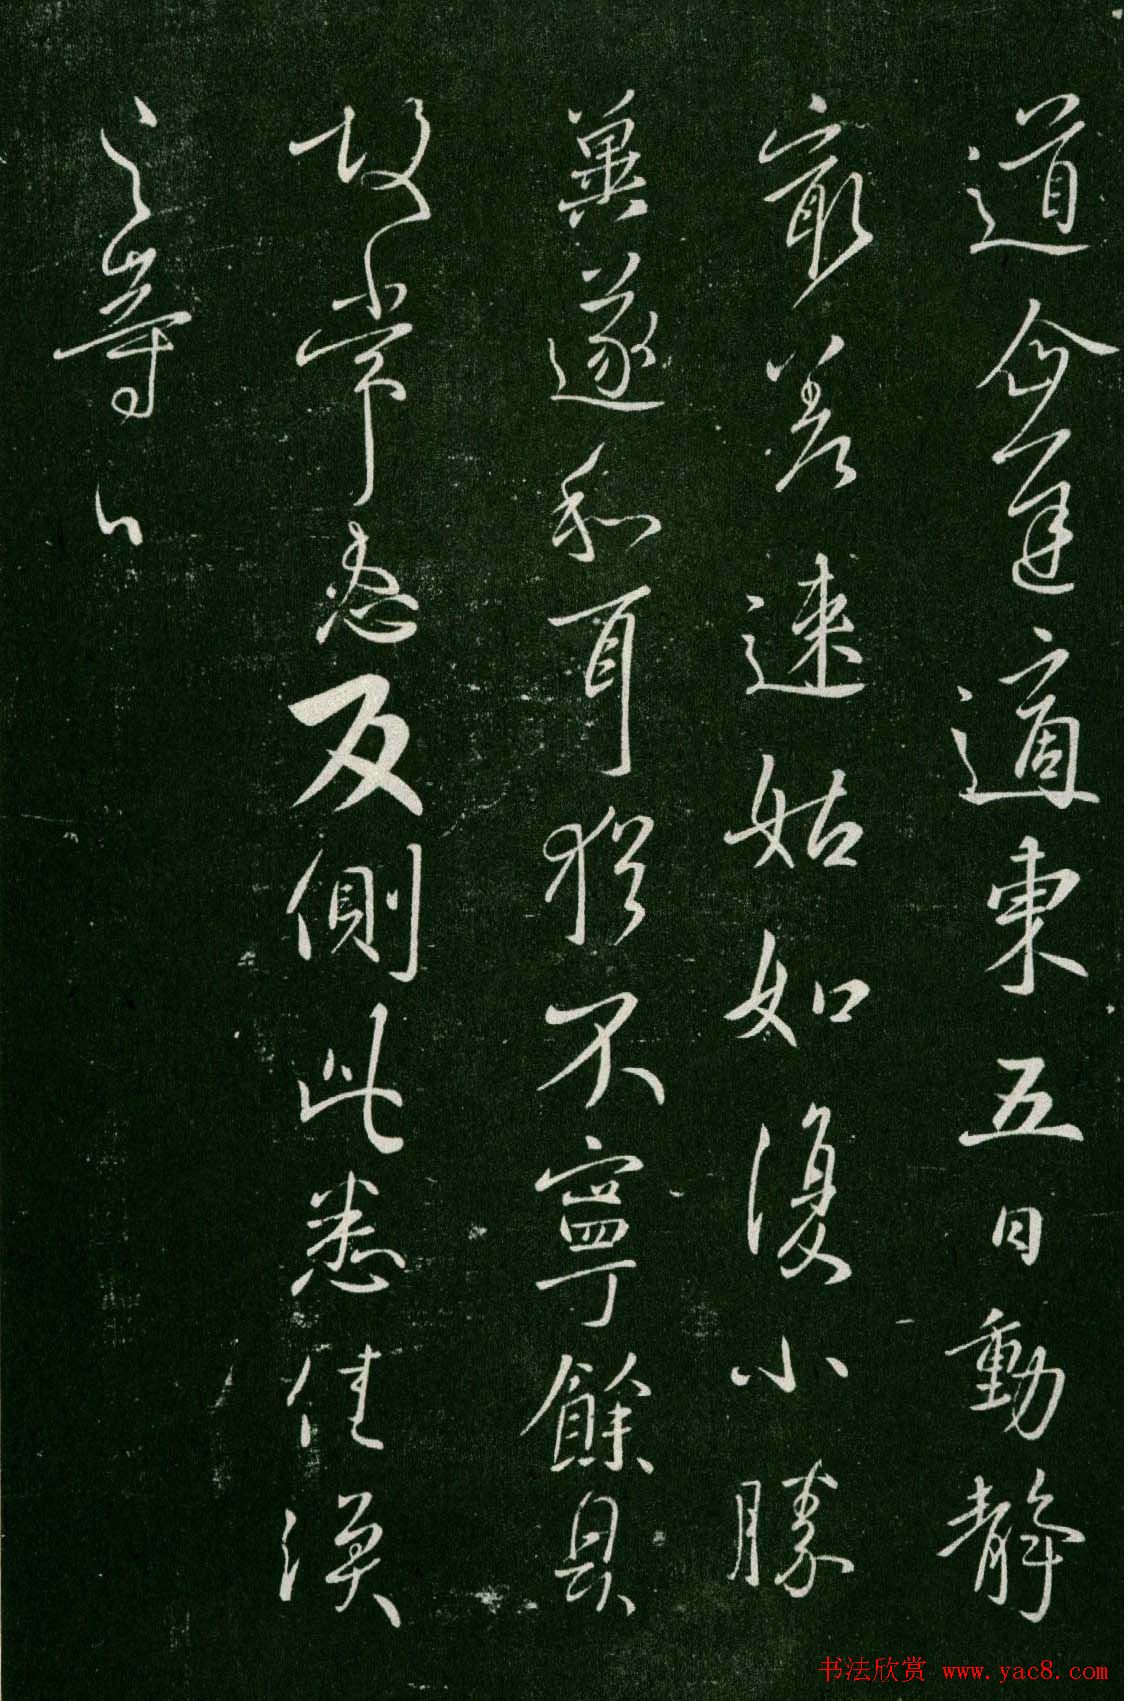 道適東五日動靜
冣差速姑如復小勝
冀遂和耳猶不寧餘具
故常忩反側此悉佳漢
之等
书法欣赏 www.yac8.com